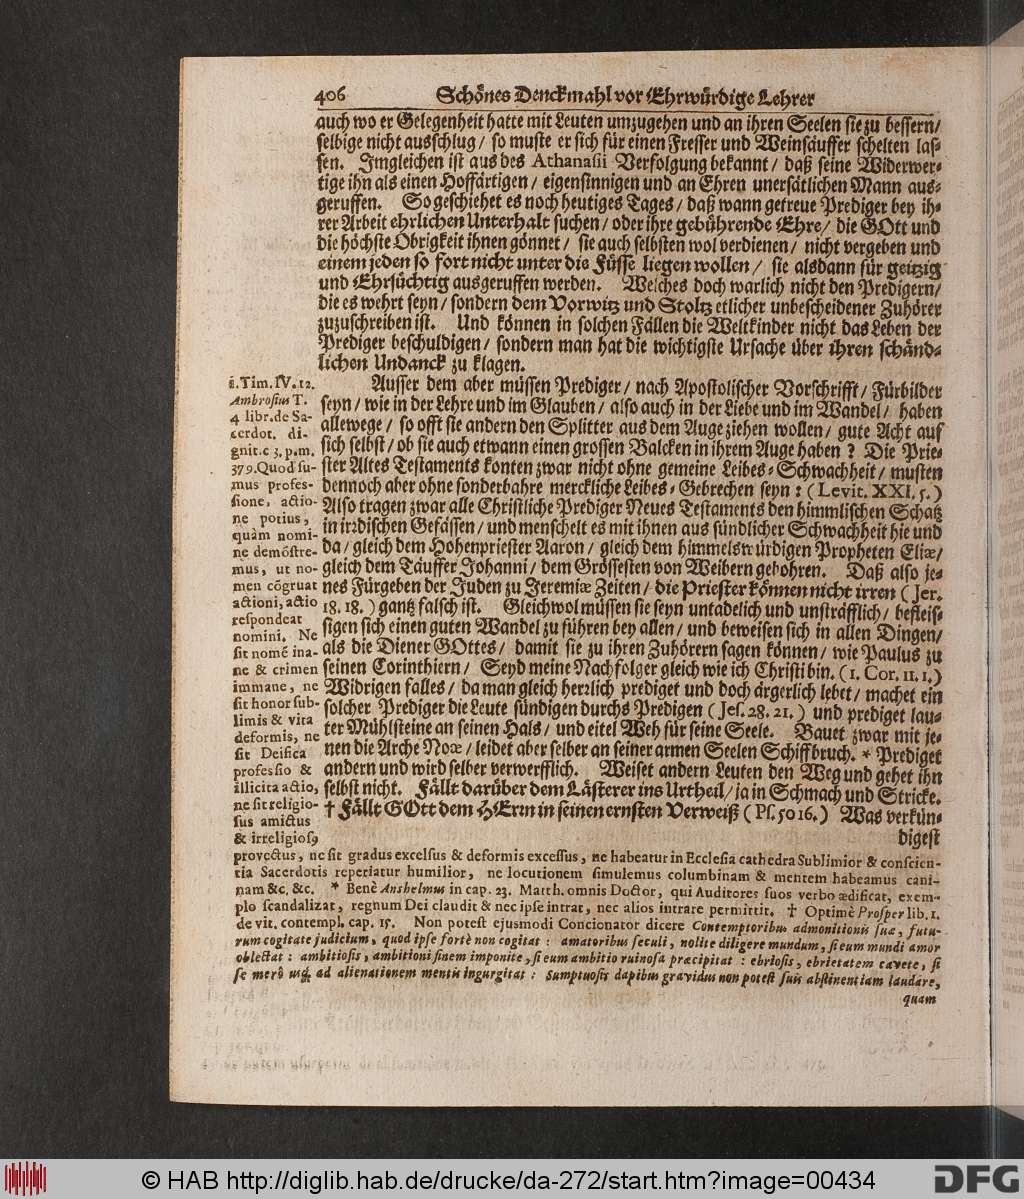 406 Schönes Denckmahl vor Ehrwürdige Lehrer
auch wo er Gelegenheit hatte mit Leuten umzugehen und an ihren Seelen sie zu bessern/
selbige nicht ausschlug / so muste er sich für einen Fresser und Weinsäuffer schelten las-
sen. Imgleichen ist aus des Athanasii Verfolgung bekannt / daß seine Widerwer-
tige ihn als einen Hoffärtigen / eigensinnigen und an Ehren unersätlichen Mann aus-
geruffen. So geschiehet es noch heutiges Tages / daß wann getreue Prediger bey ih-
rer Arbeit ehrlichen Unterhalt suchen / oder ihre gebührende Ehre / die GOtt und
die höchste Obrigkeit ihnen gönnet / sie auch selbsten wol verdienen / nicht vergeben und
einem jeden so fort nicht unter die Füsse liegen wollen / sie alsdann für geitzig
und Ehrsüchtig ausgeruffen werden. Welches doch warlich nicht den Predigern/
die es wehrt seyn / sondern dem Vorwitz und Stoltz etlicher unbescheidener Zuhörer
zuzuschreiben ist. Und können in solchen Fällen die Weltkinder nicht das Leben der
Prediger beschuldigen / sondern man hat die wichtigste Ursache über ihren schänd-
lichen Undanck zu klagen.
Ausser dem aber müssen Prediger / nach Apostolischer Vorschrifft / Fürbilder
seyn / wie in der Lehre und im Glauben / also auch in der Liebe und im Wandel / haben
allewege / so offt sie andern den Splitter aus dem Auge ziehen wollen / gute Acht auf
sich selbst / ob sie auch etwann einen grossen Balcken in ihrem Auge haben ? Die Prie-
ster Altes Testaments konten zwar nicht ohne gemeine Leibes-Schwachheit / musten
dennoch aber ohne sonderbahre merckliche Leibes-Gebrechen seyn : (Levit. XXI. 5.)
Also tragen zwar alle Christliche Prediger Neues Testaments den himmlischen Schatz
in irrdischen Gefässen / und menschelt es mit ihnen aus sündlicher Schwachheit hie und
da / gleich dem Hohenpriester Aaron / gleich dem himmelswürdigen Propheten Eliæ/
gleich dem Täuffer Johanni / dem Grössesten von Weibern gebohren. Daß also je-
nes Fürgeben der Juden zu Jeremiæ Zeiten / die Priester können nicht irren (Jer.
18. 18. ) gantz falsch ist. Gleichwol müssen sie seyn untadelich und unsträfflich / befleis-
sigen sich einen guten Wandel zu führen bey allen / und beweisen sich in allen Dingen/
als die Diener GOttes / damit sie zu ihren Zuhörern sagen können / wie Paulus zu
seinen Corinthiern / Seyd meine Nachfolger gleich wie ich Christi bin. (1. Cor. 11. 1.)
Widrigen falles / da man gleich herzlich prediget und doch ärgerlich lebet / machet ein
solcher Prediger die Leute sündigen durchs Predigen (Jes. 28. 21.) und prediget lau-
ter Mühlsteine an seinen Hals / und eitel Weh für seine Seele. Bauet zwar mit je-
nen die Arche Noæ / leidet aber selber an seiner armen Seelen Schiffbruch. * Prediget
andern und wird selber verwerfflich. Weiset andern Leuten den Weg und gehet ihn
selbst nicht. Fällt darüber dem Lästerer ins Urtheil / ja in Schmach und Stricke.
† Fällt GOtt dem HErrn in seinen ernsten Verweiß (Ps. 50 16.) Was verkün-
digest
1. Tim. IV. 12.
Ambrosius T.
4 libr. de Sa-
cerdot. di-
gnit. c 3. p. m.
379. Quod su-
mus profes-
sione, actio-
ne potius,
quàm nomi-
ne demōstre-
mus, ut no-
men cōgruat
actioni, actio
respondeat
nomini. Ne
sit nomē ina-
ne & crimen
immane, ne
sit honor sub-
limis & vita
deformis, ne
sit Deifica
professio &
illicita actio,
ne sit religio-
sus amictus
& irreligiosꝰ
provectus, ne sit gradus excelsus & deformis excessus, ne habeatur in Ecclesia cathedra Sublimior & conscien-
tia Sacerdotis reperiatur humilior, ne locutionem simulemus columbinam & mentem habeamus cani-
nam &c. &c. * Benè Anshelmus in cap. 23. Matth. omnis Doctor, qui Auditores suos verbo ædificat, exem-
plo scandalizat, regnum Dei claudit & nec ipse intrat, nec alios intrare permittit. † Optimè Prosper lib. 1.
de vit. contempl. cap. 15. Non potest ejusmodi Concionator dicere Contemptoribus admonitionis suæ, futu-
rum cogitate judicium, quod ipse fortè non cogitat : amatoribus seculi, nolite diligere mundum, si eum mundi amor
oblectat : ambitiosis, ambitioni finem imponite, si eum ambitio ruinosa præcipitat : ebriosis, ebrietatem cavete, si
se merô usq; ad alienationem mentis ingurgitat : Sumptuosis dapibus gravidus non potest suis abstinentiam laudare,
quam
© HAB http://diglib.hab.de/drucke/da-272/start.htm?image=00434
DFG